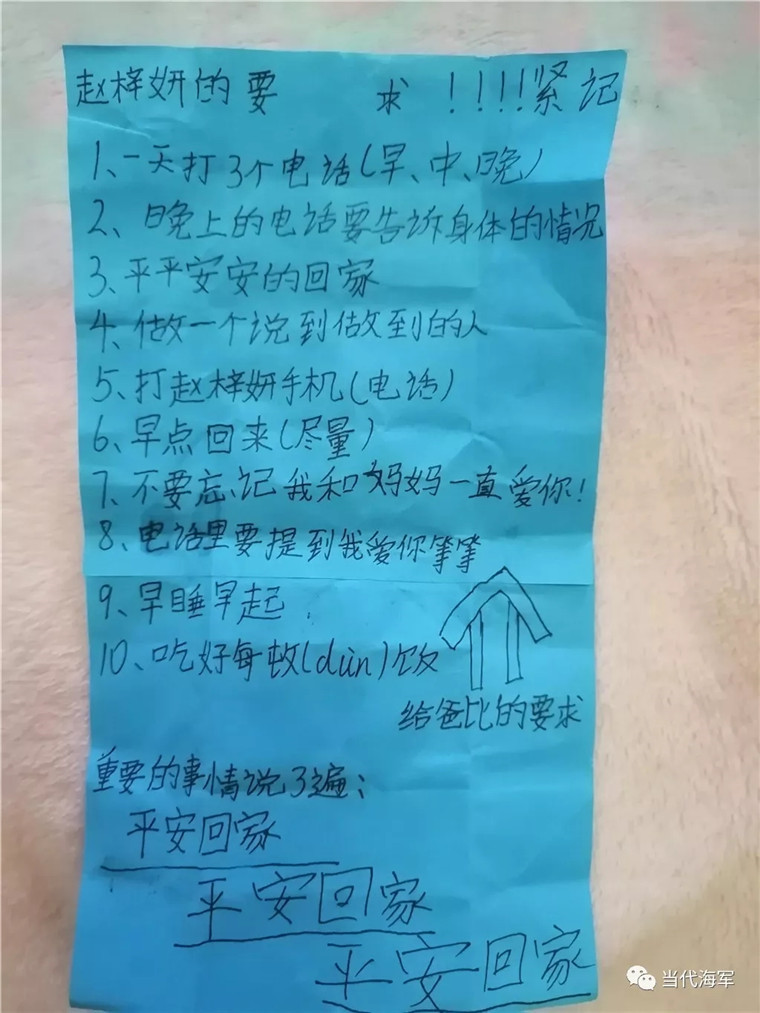 赵梓妍的要 求 !!!!紧记
1、一天打3个电话(早、中、晚)
2、晚上的电话要告诉身体的情况
3、平平安安的回家
4、做一个说到做到的人
5、打赵梓妍手机(电话)
6、早点回来(尽量)
7、不要忘记我和妈妈一直爱你!
8、电话里要提到我爱你等等
9、早睡早起.
10、吃好每顿(dùn)饭
给爸比的要求
重要的事情说3遍:
平安回家
平安回家
平安回家
当代海军